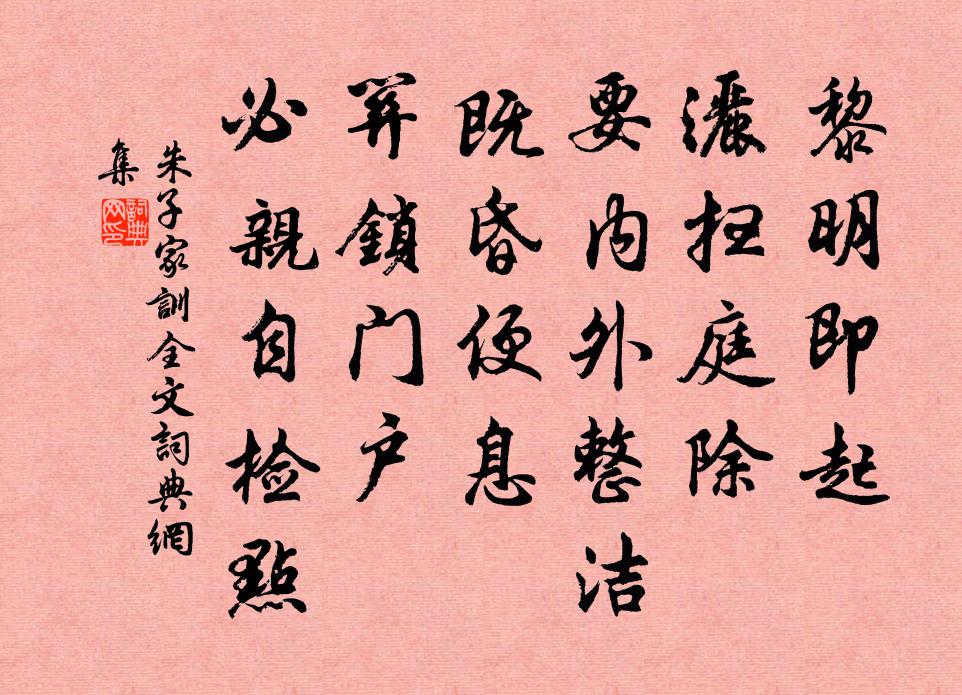 黎明即起
灑扫庭除
要内外整洁
既昏便息
關鎖门户
必親自检點
朱子家訓全文詞典網
集
詞典
网印